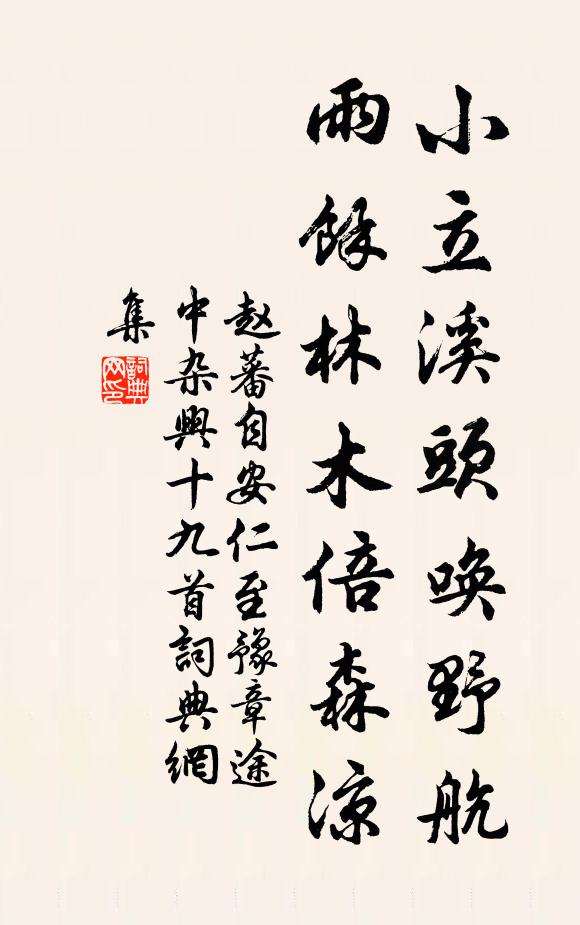 小立溪頭喚野航
雨餘林木倍森涼
赵蕃自安仁至豫章途
中杂興十九首詞典網
集
詞典
网印